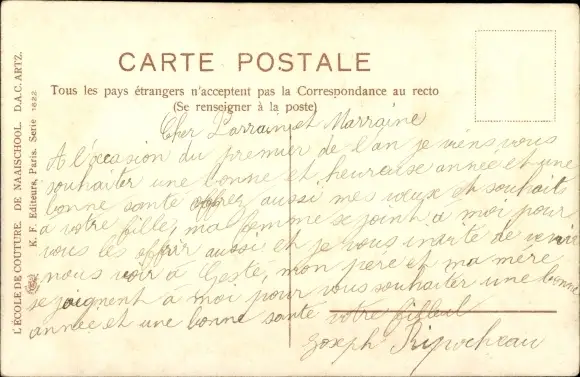 CARTE POSTALE
Tous les pays étrangers n'acceptent pas la Correspondance au recto
(Se renseigner à la poste)
L'ÉCOLE DE COUTURE. DE NAAIISCHOOL. D.A.C. ARTZ.
K. F. Editeurs, Paris. Serie 1622
Cher Parrain et Marraine
A l'occasion du premier de l'an je viens vous
souhaiter une bonne et heureuse année et une
bonne santé offrez aussi mes vœux et souhaits
a votre fille, ma femme se joint à moi pour
vous les offrir aussi et je vous invite de venir
nous voir à Gesté, mon père et ma mère
se joignent à moi pour vous souhaiter une bonne
année et une bonne santé votre filleul
Joseph Ripocheau